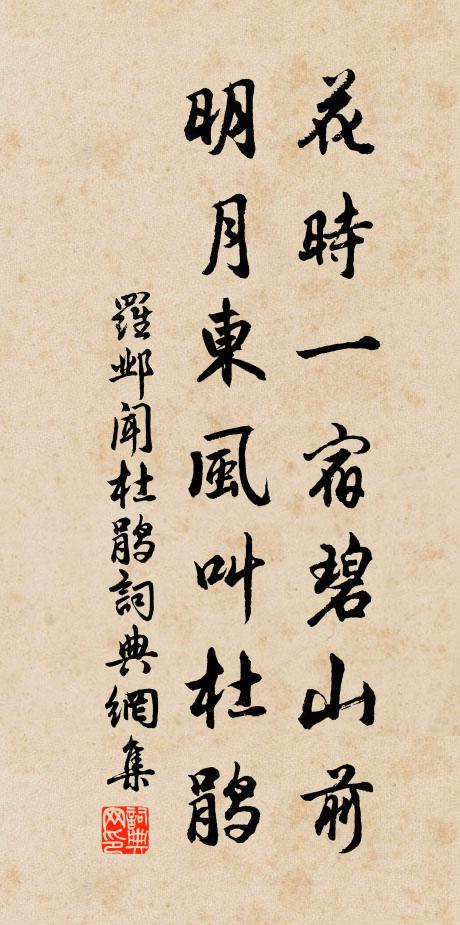 花時一宿碧山前
明月東風叫杜鵑
羅鄴聞杜鵑詞典網集
詞典网印